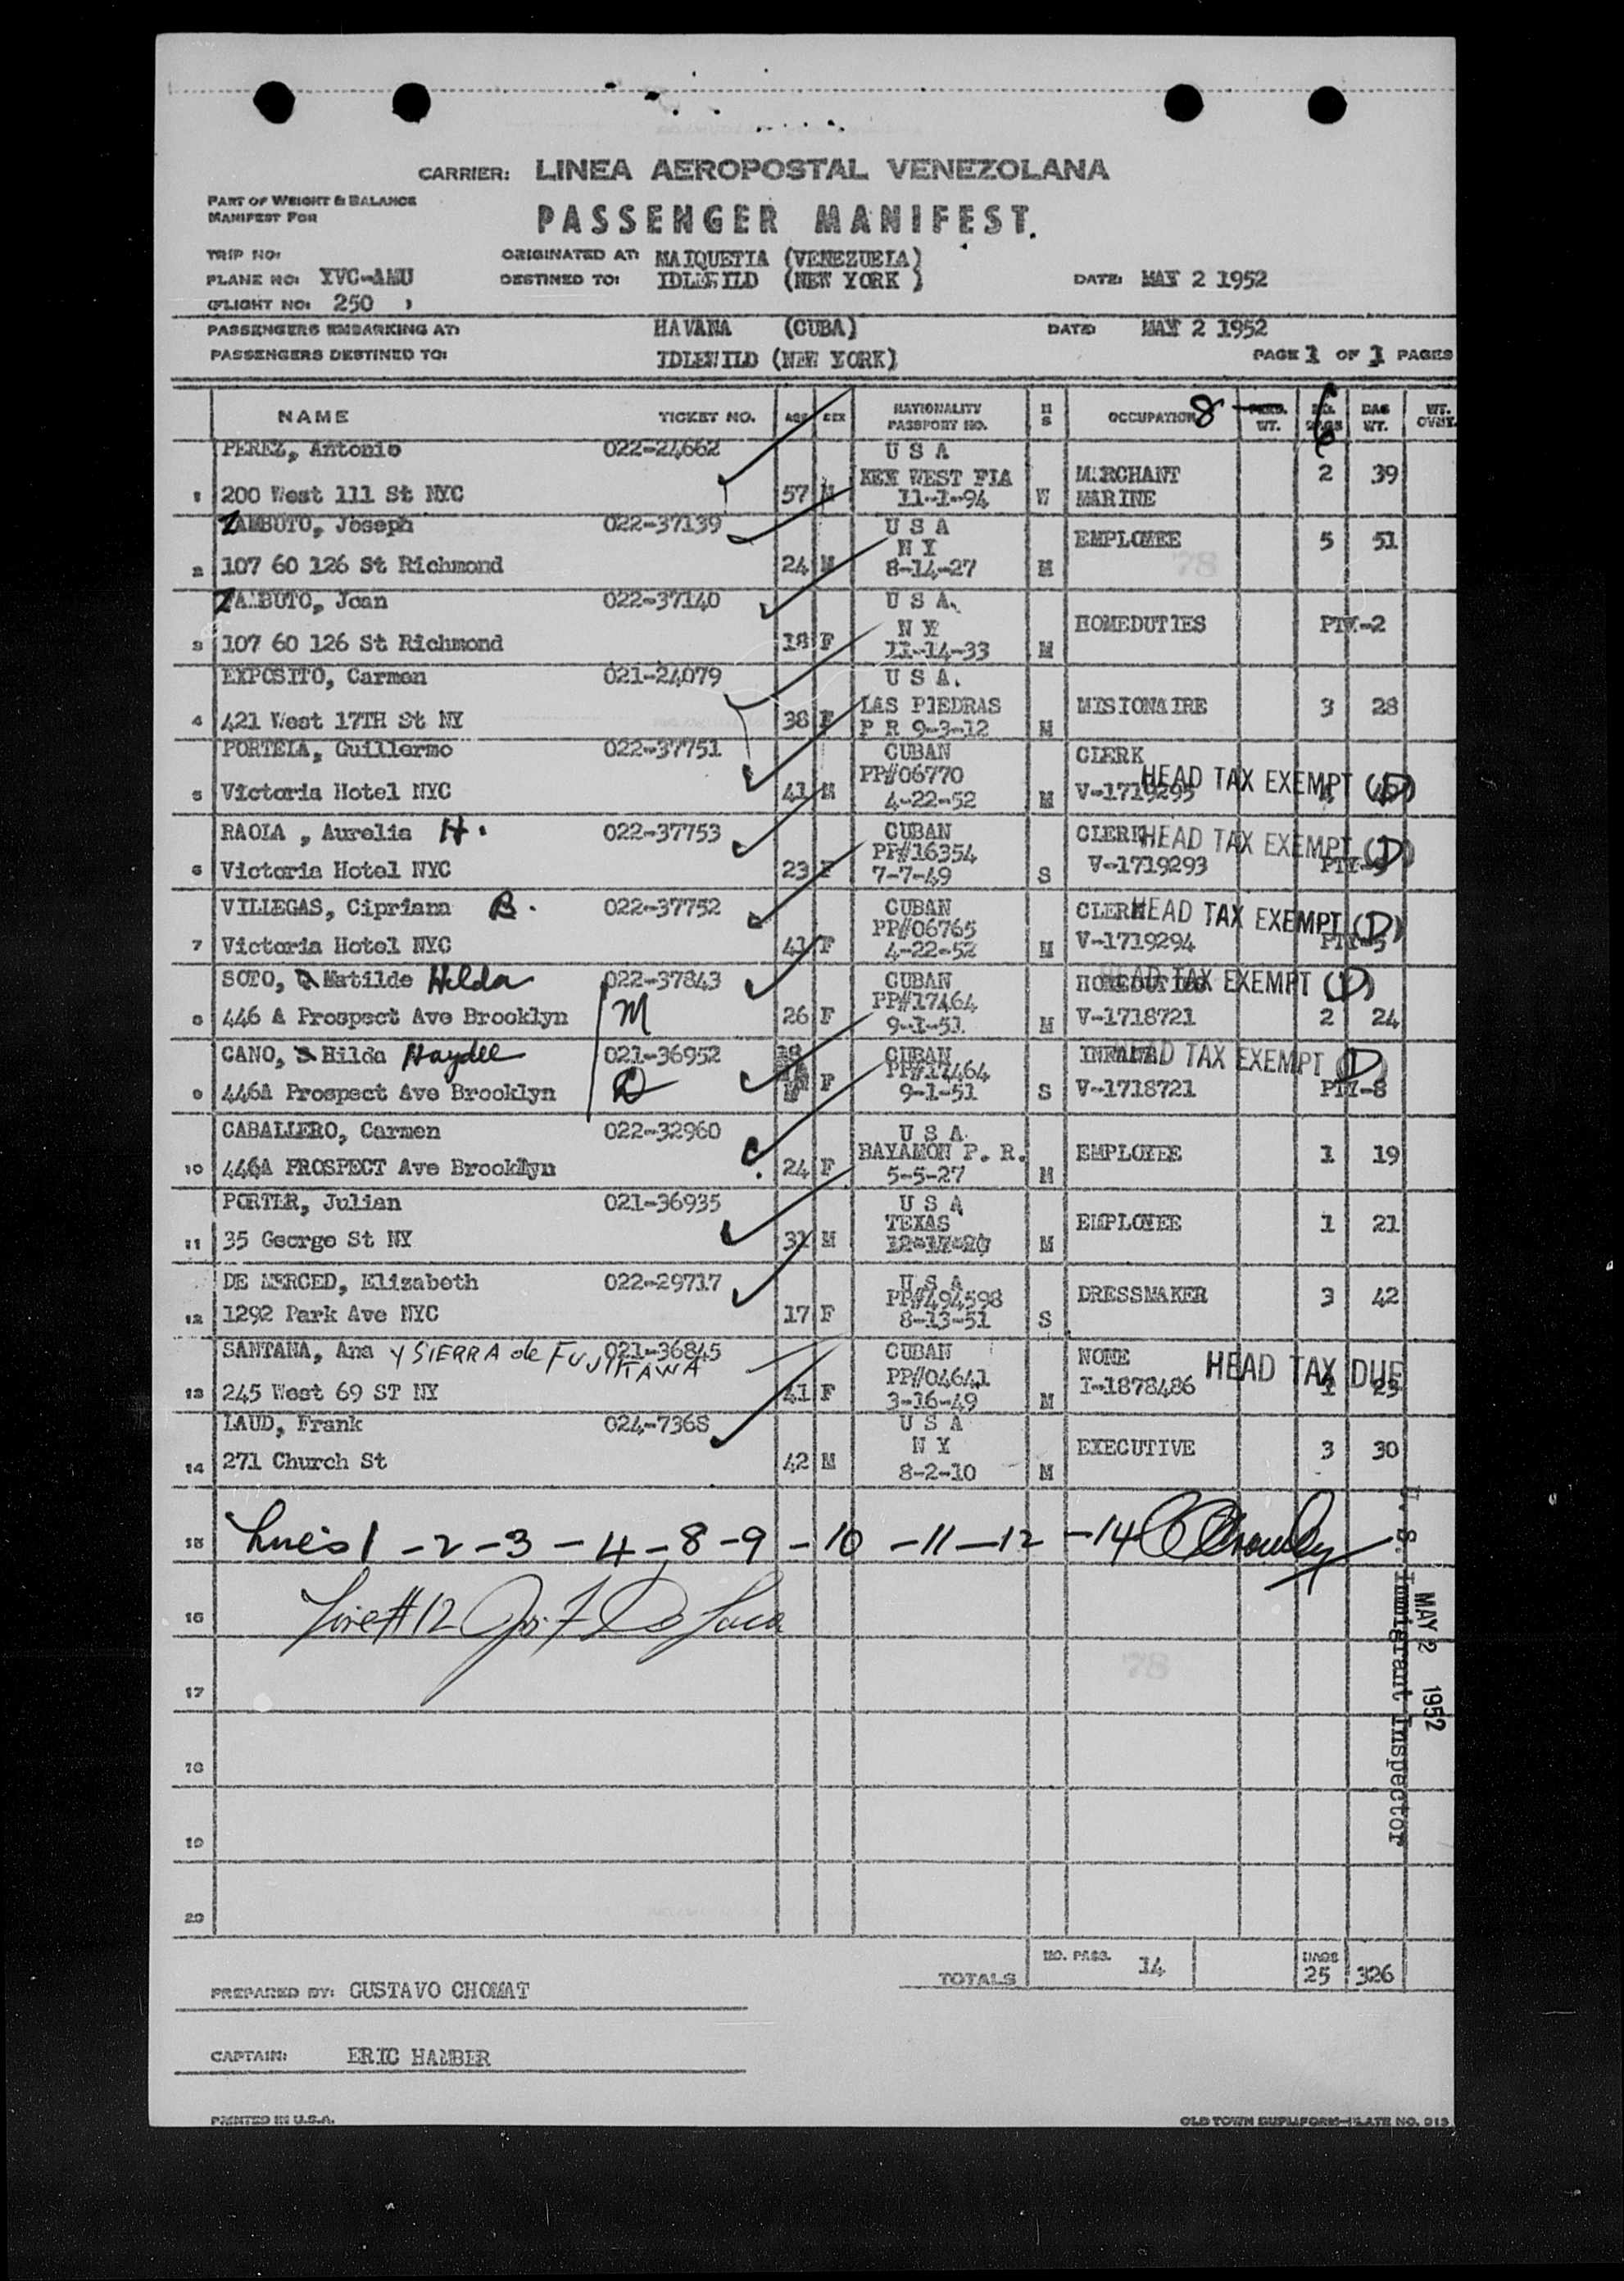 CARRIER: LINEA AEROPOSTAL VENEZOLANA
PART OF WEIGHT & BALANCE
MANIFEST FOR
PASSENGER MANIFEST.
TRIP NO:
ORIGINATED AT: MAIQUETIA (VENEZUELA)
PLANE NO: YVC-AMU
DESTINED TO: IDLEWILD (NEW YORK )
DATE: MAY 2 1952
FLIGHT NO: 250
PASSENGERS EMBARKING AT: HAVANA (CUBA) DATE: MAY 2 1952
PASSENGERS DESTINED TO: IDLEWILD (NEW YORK) PAGE 1 OF 1 PAGES
NAME TICKET NO. AGE SEX NATIONALITY PASSPORT NO. M S OCCUPATION 8 WT. NO. BAGS BAG WT.
PEREZ, Antonio 022-24662 U S A
KEY WEST FLA MERCHANT 2 39
1 200 West 111 St NYC 57 M 11-1-94 W MARINE
ZAMBUTO, Joseph 022-37139 U S A
N Y EMPLOYEE 5 51
2 107 60 126 St Richmond 24 M 8-14-27 M
ZAMBUTO, Joan 022-37140 U S A.
N Y HOMEDUTIES PTY-2
3 107 60 126 St Richmond 18 F 11-14-33 M
EXPOSITO, Carmen 021-24079 U S A.
LAS PIEDRAS MISIONAIRE 3 28
4 421 West 17TH St NY 38 F P R 9-3-12 M
PORTELA, Guillermo 022-37751 CUBAN CLERK
PP#06770 HEAD TAX EXEMPT (D)
5 Victoria Hotel NYC 41 M 4-22-52 M V-1719295
RAOLA , Aurelia H. 022-37753 CUBAN CLERK HEAD TAX EXEMPT (D)
PP#16354
6 Victoria Hotel NYC 23 F 7-7-49 S V-1719293
VILLEGAS, Cipriana B. 022-37752 CUBAN CLERK HEAD TAX EXEMPT (D)
PP#06765
7 Victoria Hotel NYC 41 F 4-22-52 M V-1719294 PTY-5
SOTO, Matilde Hilda 022-37843 CUBAN HOMEDUTIES HEAD TAX EXEMPT (D)
PP#17464
8 446 A Prospect Ave Brooklyn M 26 F 9-1-51 M V-1718721 2 24
CANO, Hilda Haydee 021-36952 CUBAN HEAD TAX EXEMPT (D)
PP#17464
9 446A Prospect Ave Brooklyn D F 9-1-51 S V-1718721 PTY-8
CABALLERO, Carmen 022-32960 U S A
BAYAMON P. R. EMPLOYEE 1 19
10 446A PROSPECT Ave Brooklyn 24 F 5-5-27 M
PORTER, Julian 021-36935 U S A
TEXAS EMPLOYEE 1 21
11 35 George St NY 31 M 12-17-20 M
DE MERCED, Elizabeth 022-29717 U S A
PP#494598 DRESSMAKER 3 42
12 1292 Park Ave NYC 17 F 8-13-51 S
SANTANA, Ana Y SIERRA de FUJIKAWA 021-36845 CUBAN NONE
PP#04641 HEAD TAX DUE
13 245 West 69 ST NY 41 F 3-16-49 M I-1878486 1 25
LAUD, Frank 024-7368 U S A
N Y EXECUTIVE 3 30
14 271 Church St 42 M 8-2-10 M
15 Lines 1 -2-3-4-8-9-10-11-12-14
16 Line # 12
17
18
19
20
U. S. Immigrant Inspector
MAY 2 1952
TOTALS NO. PASS. 14 BAGS 25 326
PREPARED BY: GUSTAVO CHOMAT
CAPTAIN: ERIC HAMBER
PRINTED IN U.S.A.
OLD TOWN DUPLIFORM-PLATE NO. 913